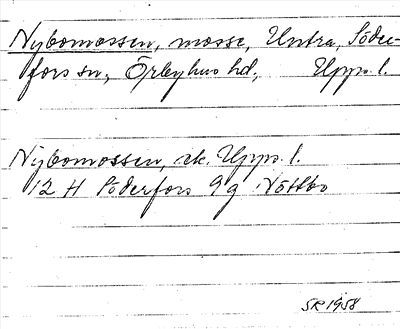 Nybomossen, mosse, Untra, Söder-
fors sn, Örbyhus hd, Upps. l.
Nybomossen, ek. Upps. l.
12 H Söderfors 9 g Nöttbo
SR 1958